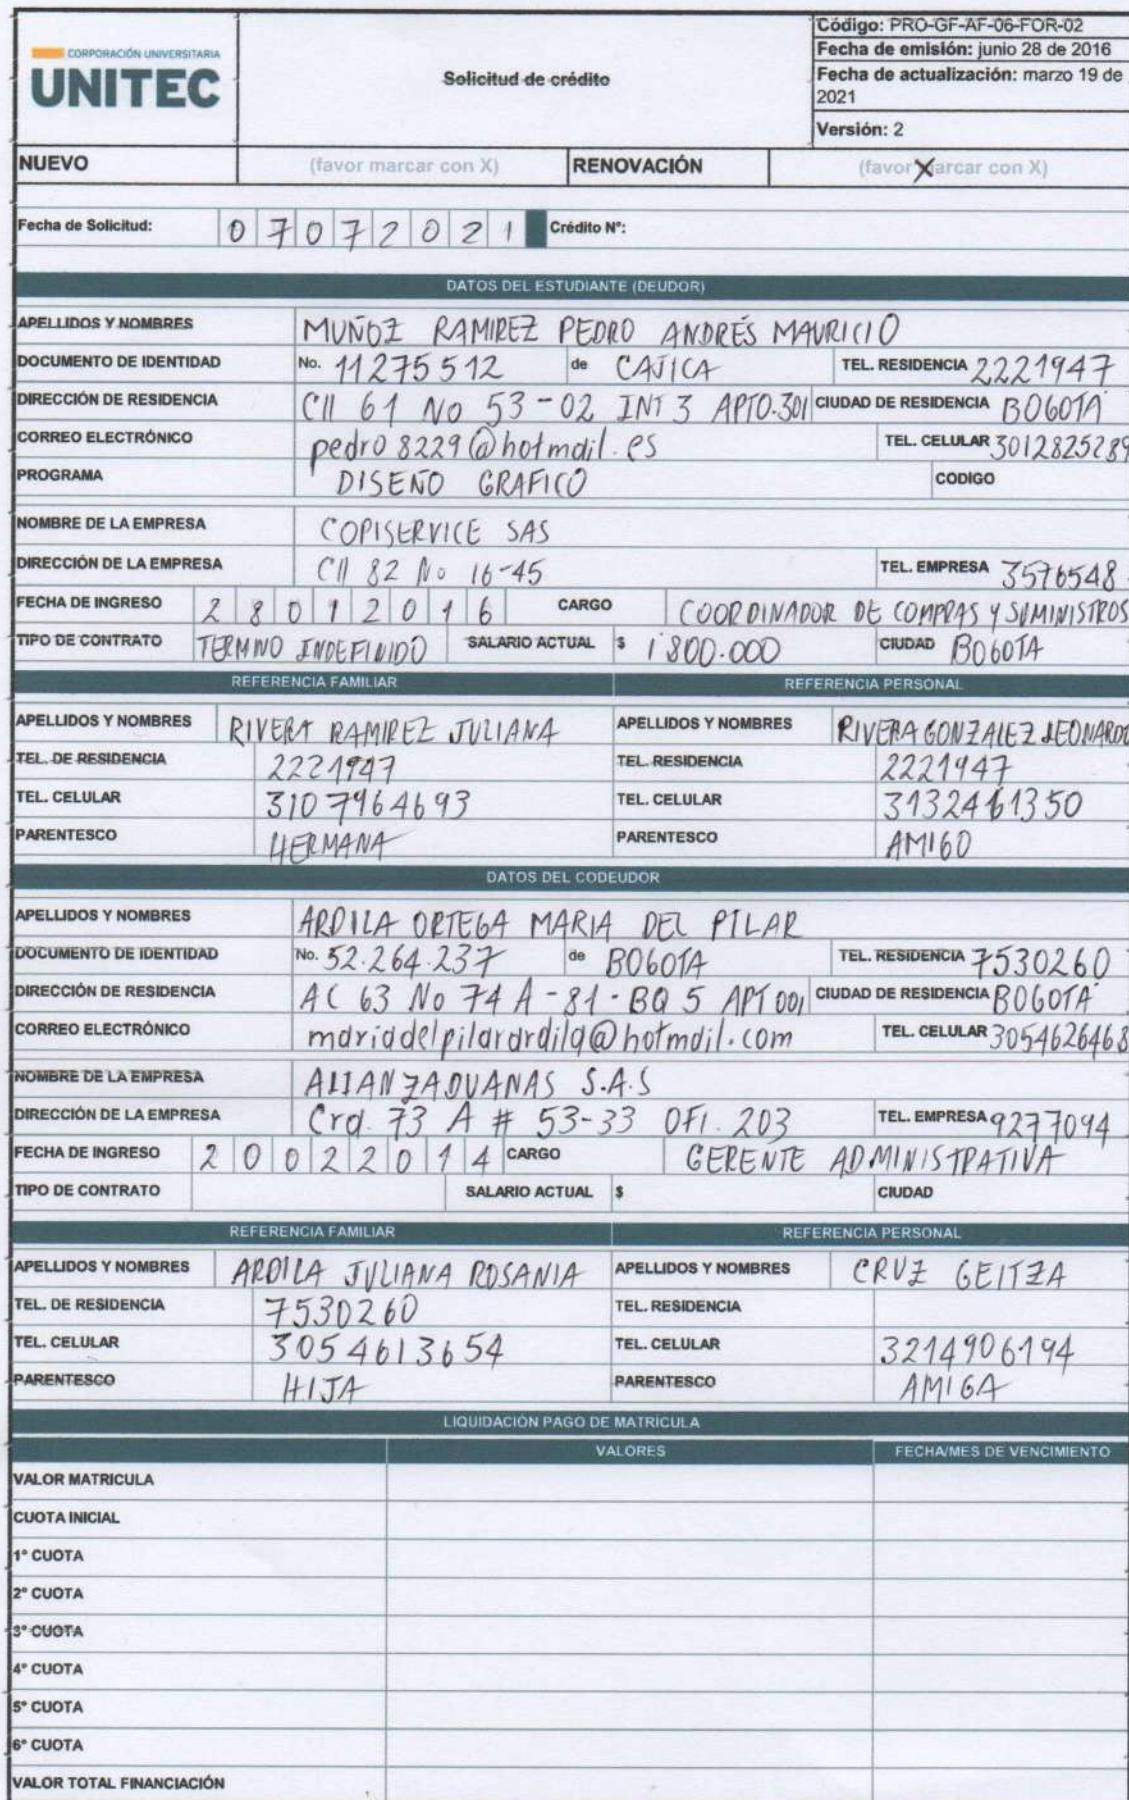 CORPORACIÓN UNIVERSITARIA
UNITEC
Solicitud de crédito
Código: PRO-GF-AF-06-FOR-02
Fecha de emisión: junio 28 de 2016
Fecha de actualización: marzo 19 de
2021
Versión: 2
NUEVO (favor marcar con X) RENOVACIÓN (favor marcar con X) X
Fecha de Solicitud: 0 7 0 7 2 0 2 1 Crédito N°:
DATOS DEL ESTUDIANTE (DEUDOR)
APELLIDOS Y NOMBRES MUÑOZ RAMIREZ PEDRO ANDRÉS MAURICIO
DOCUMENTO DE IDENTIDAD No. 11275512 de CAJICA TEL. RESIDENCIA 2221947
DIRECCIÓN DE RESIDENCIA Cll 61 No 53-02 INT 3 APTO.301 CIUDAD DE RESIDENCIA BOGOTÁ
CORREO ELECTRÓNICO pedro8229@hotmail.es TEL. CELULAR 3012825289
PROGRAMA DISEÑO GRAFICO CODIGO
NOMBRE DE LA EMPRESA COPISERVICE SAS
DIRECCIÓN DE LA EMPRESA Cll 82 No 16-45 TEL. EMPRESA 3576548
FECHA DE INGRESO 2 8 0 1 2 0 1 6 CARGO COORDINADOR DE COMPRAS Y SUMINISTROS
TIPO DE CONTRATO TERMINO INDEFINIDO SALARIO ACTUAL $ 1'800.000 CIUDAD BOGOTA
REFERENCIA FAMILIAR REFERENCIA PERSONAL
APELLIDOS Y NOMBRES RIVERA RAMIREZ JULIANA APELLIDOS Y NOMBRES RIVERA GONZALEZ LEONARDO
TEL. DE RESIDENCIA 2221947 TEL. RESIDENCIA 2221947
TEL. CELULAR 3107964693 TEL. CELULAR 3132461350
PARENTESCO HERMANA PARENTESCO AMIGO
DATOS DEL CODEUDOR
APELLIDOS Y NOMBRES ARDILA ORTEGA MARIA DEL PILAR
DOCUMENTO DE IDENTIDAD No. 52.264.237 de BOGOTA TEL. RESIDENCIA 7530260
DIRECCIÓN DE RESIDENCIA AC 63 No 74 A-81-BQ 5 APT 001 CIUDAD DE RESIDENCIA BOGOTA
CORREO ELECTRÓNICO mariadelpilarardila@hotmail.com TEL. CELULAR 3054626468
NOMBRE DE LA EMPRESA ALIANZADUANAS S.A.S
DIRECCIÓN DE LA EMPRESA Cra. 73 A # 53-33 OFI. 203 TEL. EMPRESA 9277094
FECHA DE INGRESO 2 0 0 2 2 0 1 4 CARGO GERENTE ADMINISTRATIVA
TIPO DE CONTRATO SALARIO ACTUAL $ CIUDAD
REFERENCIA FAMILIAR REFERENCIA PERSONAL
APELLIDOS Y NOMBRES ARDILA JULIANA ROSANIA APELLIDOS Y NOMBRES CRUZ GEITZA
TEL. DE RESIDENCIA 7530260 TEL. RESIDENCIA
TEL. CELULAR 3054613654 TEL. CELULAR 3214906194
PARENTESCO HIJA PARENTESCO AMIGA
LIQUIDACIÓN PAGO DE MATRÍCULA
VALORES FECHA/MES DE VENCIMIENTO
VALOR MATRICULA
CUOTA INICIAL
1° CUOTA
2° CUOTA
3° CUOTA
4° CUOTA
5° CUOTA
6° CUOTA
VALOR TOTAL FINANCIACIÓN